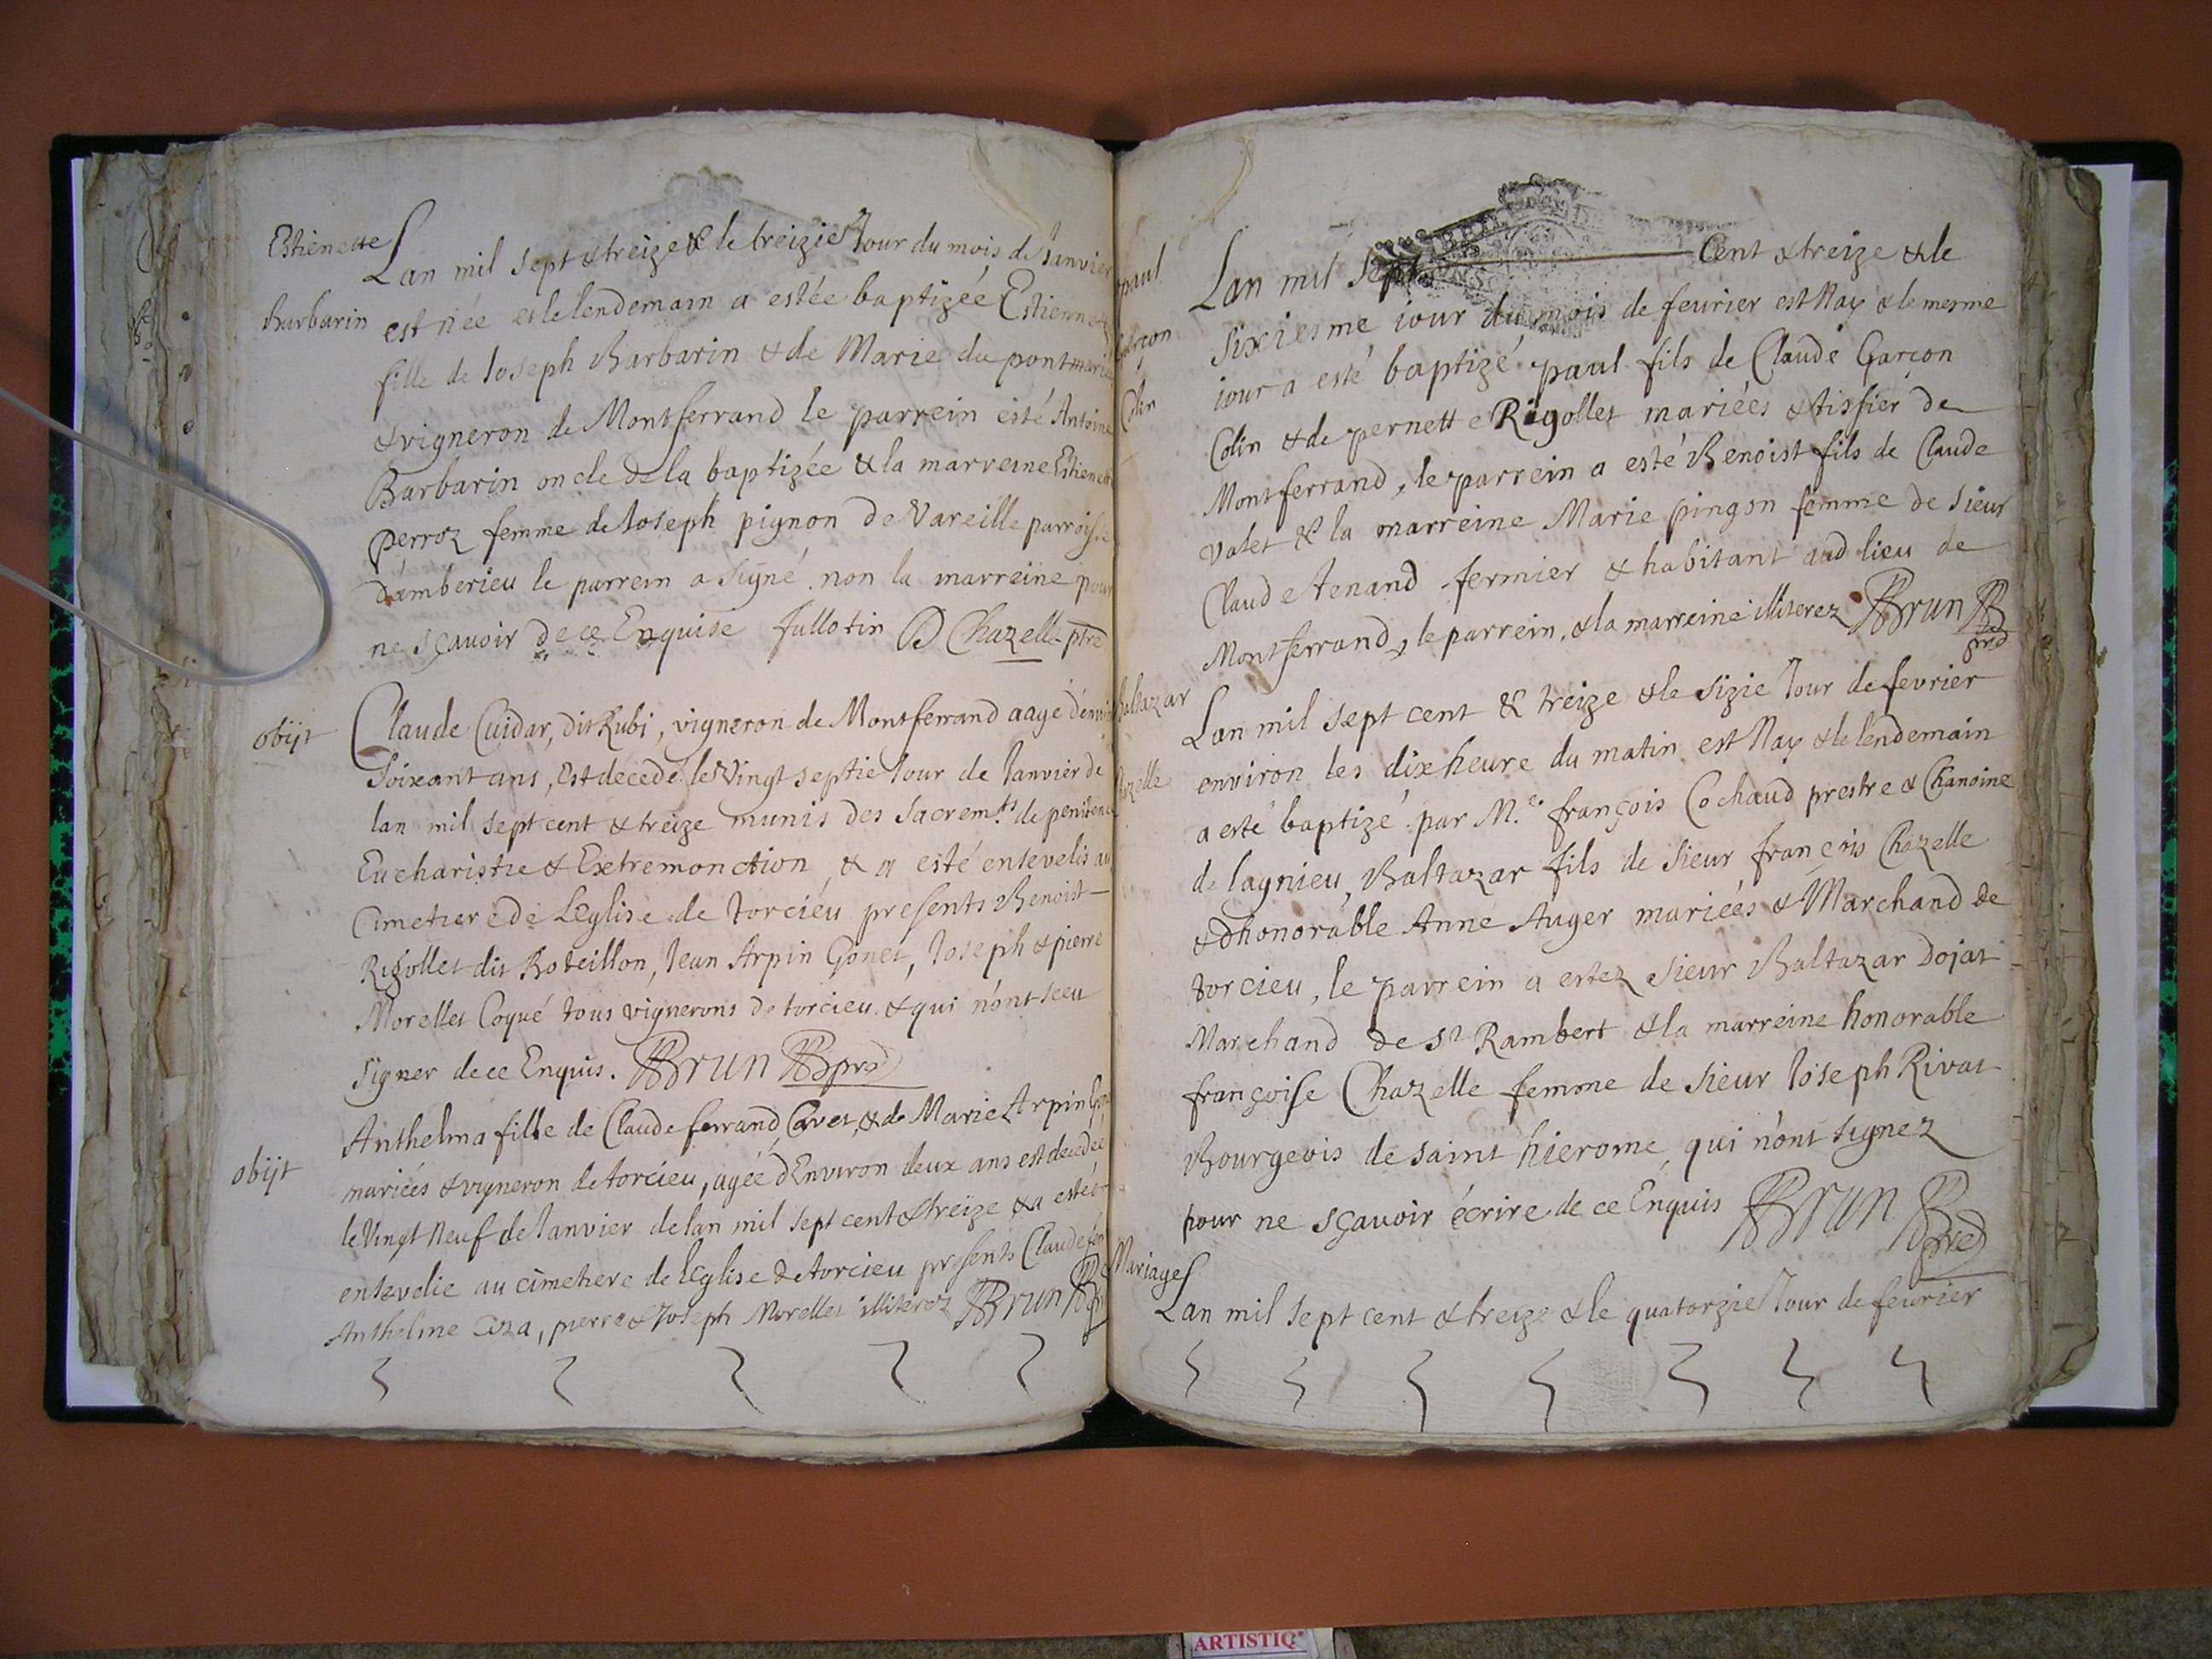 Estienette
Barbarin
Lan mil sept & treize & le treizie Jour du mois de Janvier
est née et le lendemain a estée baptizée Estiennette
fille de Joseph Barbarin & de Marie du pont mariés
& vigneron de Montferrand le parrein esté Antoine
Barbarin oncle de la baptizée & la marreine Estienette
Perroz femme de Joseph pignon de Vareille parroisse
d'amberieu le parrein a signé non la marreine pour
ne sçavoir de ce Enquise Jullotin D Chazelle ptre
obijt
Claude Cuidar, dit Rubi, vigneron de Montferrand aagé d'environ
Soixant ans, Est decedé le Vingt septie Jour de Janvier de
lan mil sept cent & treize munis des Sacrem.ts de penitence
Eucharistie & Extremonction, & a esté ensevelis au
Cimetiere de L'Eglise de torciéu presents Benoist
Rigollet dit Boteillon, Jean Arpin Gonet, Joseph & pierre
Morellet Coqué tous vignerons de torcieu & qui n'ont sceu
Signer de ce Enquis. Brun pre
obijt
Anthelma fille de Claude ferrand Cavet, & de Marie Arpin
mariées & vigneron de torcieu, agée d'Environ deux ans est decedée
le Vingt Neuf de Janvier de lan mil sept cent & treize & a esté
ensevelie au cimetiere de l'Eglise de torcieu presents Claude
Anthelme Ciza, pierre & Joseph Morellet illiterez Brun
paul
Garçon
Colin
Lan mil Sept Cent & treize & le
Sixiesme iour du mois de feurier est Nay & le mesme
iour a esté baptizé paul fils de Claude Garçon
Colin & de pernette Rigollet mariées & tissier de
Montferrand, le parrein a esté Benoist fils de Claude
Valet & la marreine Marie pingon femme de Sieur
Claude tenand fermier & habitant aud lieu de
Montferrand, le parrein, & la marreine illiterez Brun
pre
Baltazar
Chazelle
Lan mil sept cent & treize & le sizie Jour de fevrier
environ les dix heure du matin est Nay & le lendemain
a esté baptizé par M.e françois Cochaud prestre & Chanoine
de lagnieu, Baltazar fils de Sieur françois Chazelle
& d'honorable Anne Auger mariées & Marchand de
torcieu, le parrein a estez Sieur Baltazar Dojat
Marchand de St Rambert & la marreine honorable
françoise Chazelle femme de Sieur Joseph Rivat
Bourgeois de saint hierome, qui n'ont signez
pour ne sçavoir écrire de ce Enquis Brun
pre
Mariage
Lan mil sept cent & treize & le quatorzie Jour de feurier
ARTISTIQ